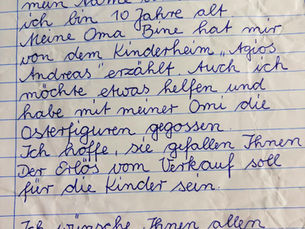 mein Name
ich bin 10 Jahre alt
Meine Oma Bine hat mir
von dem Kinderheim „Agios
Andreas" erzählt. Auch ich
möchte etwas helfen und
habe mit meiner Omi die
Osterfiguren gegossen.
Ich hoffe, sie gefallen Ihnen
Der Erlös vom Verkauf soll
für die Kinder sein.
Ich wünsche Ihnen allen